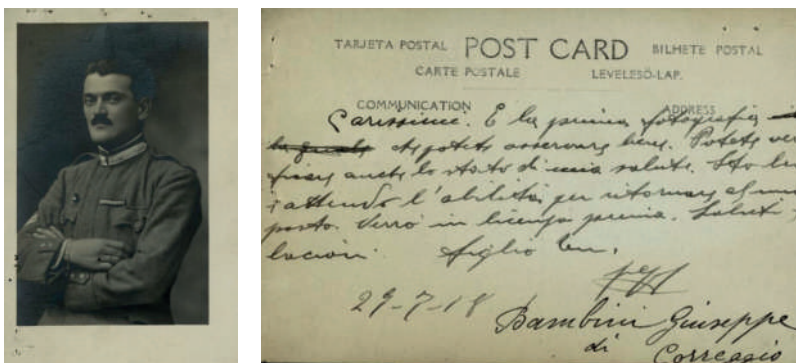 TARJETA POSTAL POST CARD BILHETE POSTAL
CARTE POSTALE LEVELESÖ-LAP.
COMMUNICATION ADDRESS
Carissimi. È la prima fotografia
che potete osservare bene. Potete veri
ficare anche lo stato di mia salute. Sto bene
attendo l'abilità per ritornare al mio
posto. Verrò in licenza premio. Saluti
bacioni. figlio
29-7-18
Bambini Giuseppe
di Correggio